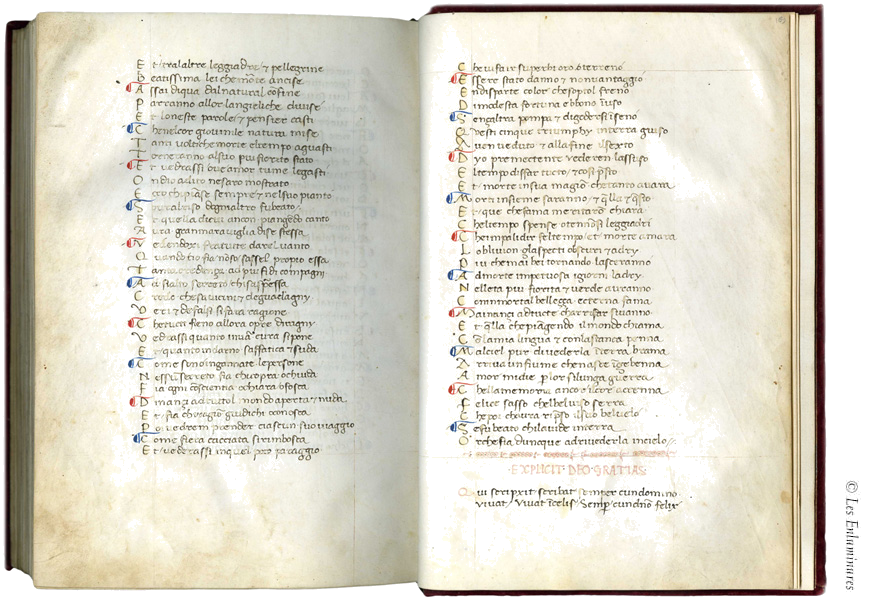 E t tralaltre leggiadre & pellegrine
B eatissima lei chemorte ancise
A ssai diqua dal natural cofine
P arranno allor langieliche divise
E t loneste parole & pensier casti
C henelcor giovinile natura mise
T anti volti che morte el tempo a guasti
T orneranno alsuo piu fiorito stato
E t vedrassi ove amor tu me legasti
O ndio adito nesaro mostrato
E cco chi piāse sempre & nel suo pianto
S opralriso dogni altro fu beato
E t quella dicui ancor piangēdo canto
A vra gran maraviglia di se stessa
V edendosi fra tutte dare il vanto
Q uando cio fia noso sassel propio essa
T anta credenza a piu fidi compagni
A si alto secreto chi sappressa
C redo chesavicini & deguadagni
V eri & defalsi si fara ragione
C he tucti fieno allora opre di ragni
V edrassi quanto invā cura si pone
E t quanto indarno saffatica & suda
C ome sono ingannate le persone
N essū secreto fia chi copra o chiuda
F ia ogni cōscientia o chiara o fosca
D inanzi ad tutol mondo aperta & nuda
E t fia chi ragiō giudichi & conosca
P oi vedrem prender ciascun suo viaggio
C ome fiera cacciata si rimbosta
E t vederassi in quel poco paraggio
C he vi fa ir superbi oro e terreno
E ssere stato danno & non vantaggio
E ndisparte color chesoptol freno
D i modesta fortuna ebbono ī uso
S engaltra pompa di godersi ī seno
Q uesti cinque triumphy interra giuso
A vem veduto & alla fine il sexto
D yo premectente vederen lassuso
E l tempo disfar tucto & cosi presto
E t morte in sua magiō chetanto avara
M orti insieme saranno & q̄lla & q̄sto
E t que che fama meritarō chiara
C hel tempo spense & be visi leggiadri
C he impalidir fel tempo et morte amara
L oblivion gl aspecti obscuri & adry
P iu che mai bei tornando lasceranno
A d morte impetuosa i giorni ladry
N ella eta piu fiorita & verde avranno
C on inmortal bellecca eterna fama
M a inanci ad tucte cha rifar si vanno
E t q̄lla che piāgendo il mondo chiama
C ō la mia lingua & con la stanca penna
M al ciel pur di vederla ītera brama
A r riva un fiume che nasce ī gebenna
A mor mi die p̄ lor si lunga guerra
C he lla memoria ancora il core accenna
F elice sasso chel bel viso serra
C he poi chavra ripso il suo bel velo
S e fu beato chi la vide in terra
O r che fia dunque ad rivederla in cielo
·EXPLICIT·DEO·GRATIAS:
Qui scripxit scribat semper cun domino
vivat / vivat ī celis / Semp̄ cun dn̄o felix
© Les Enluminures